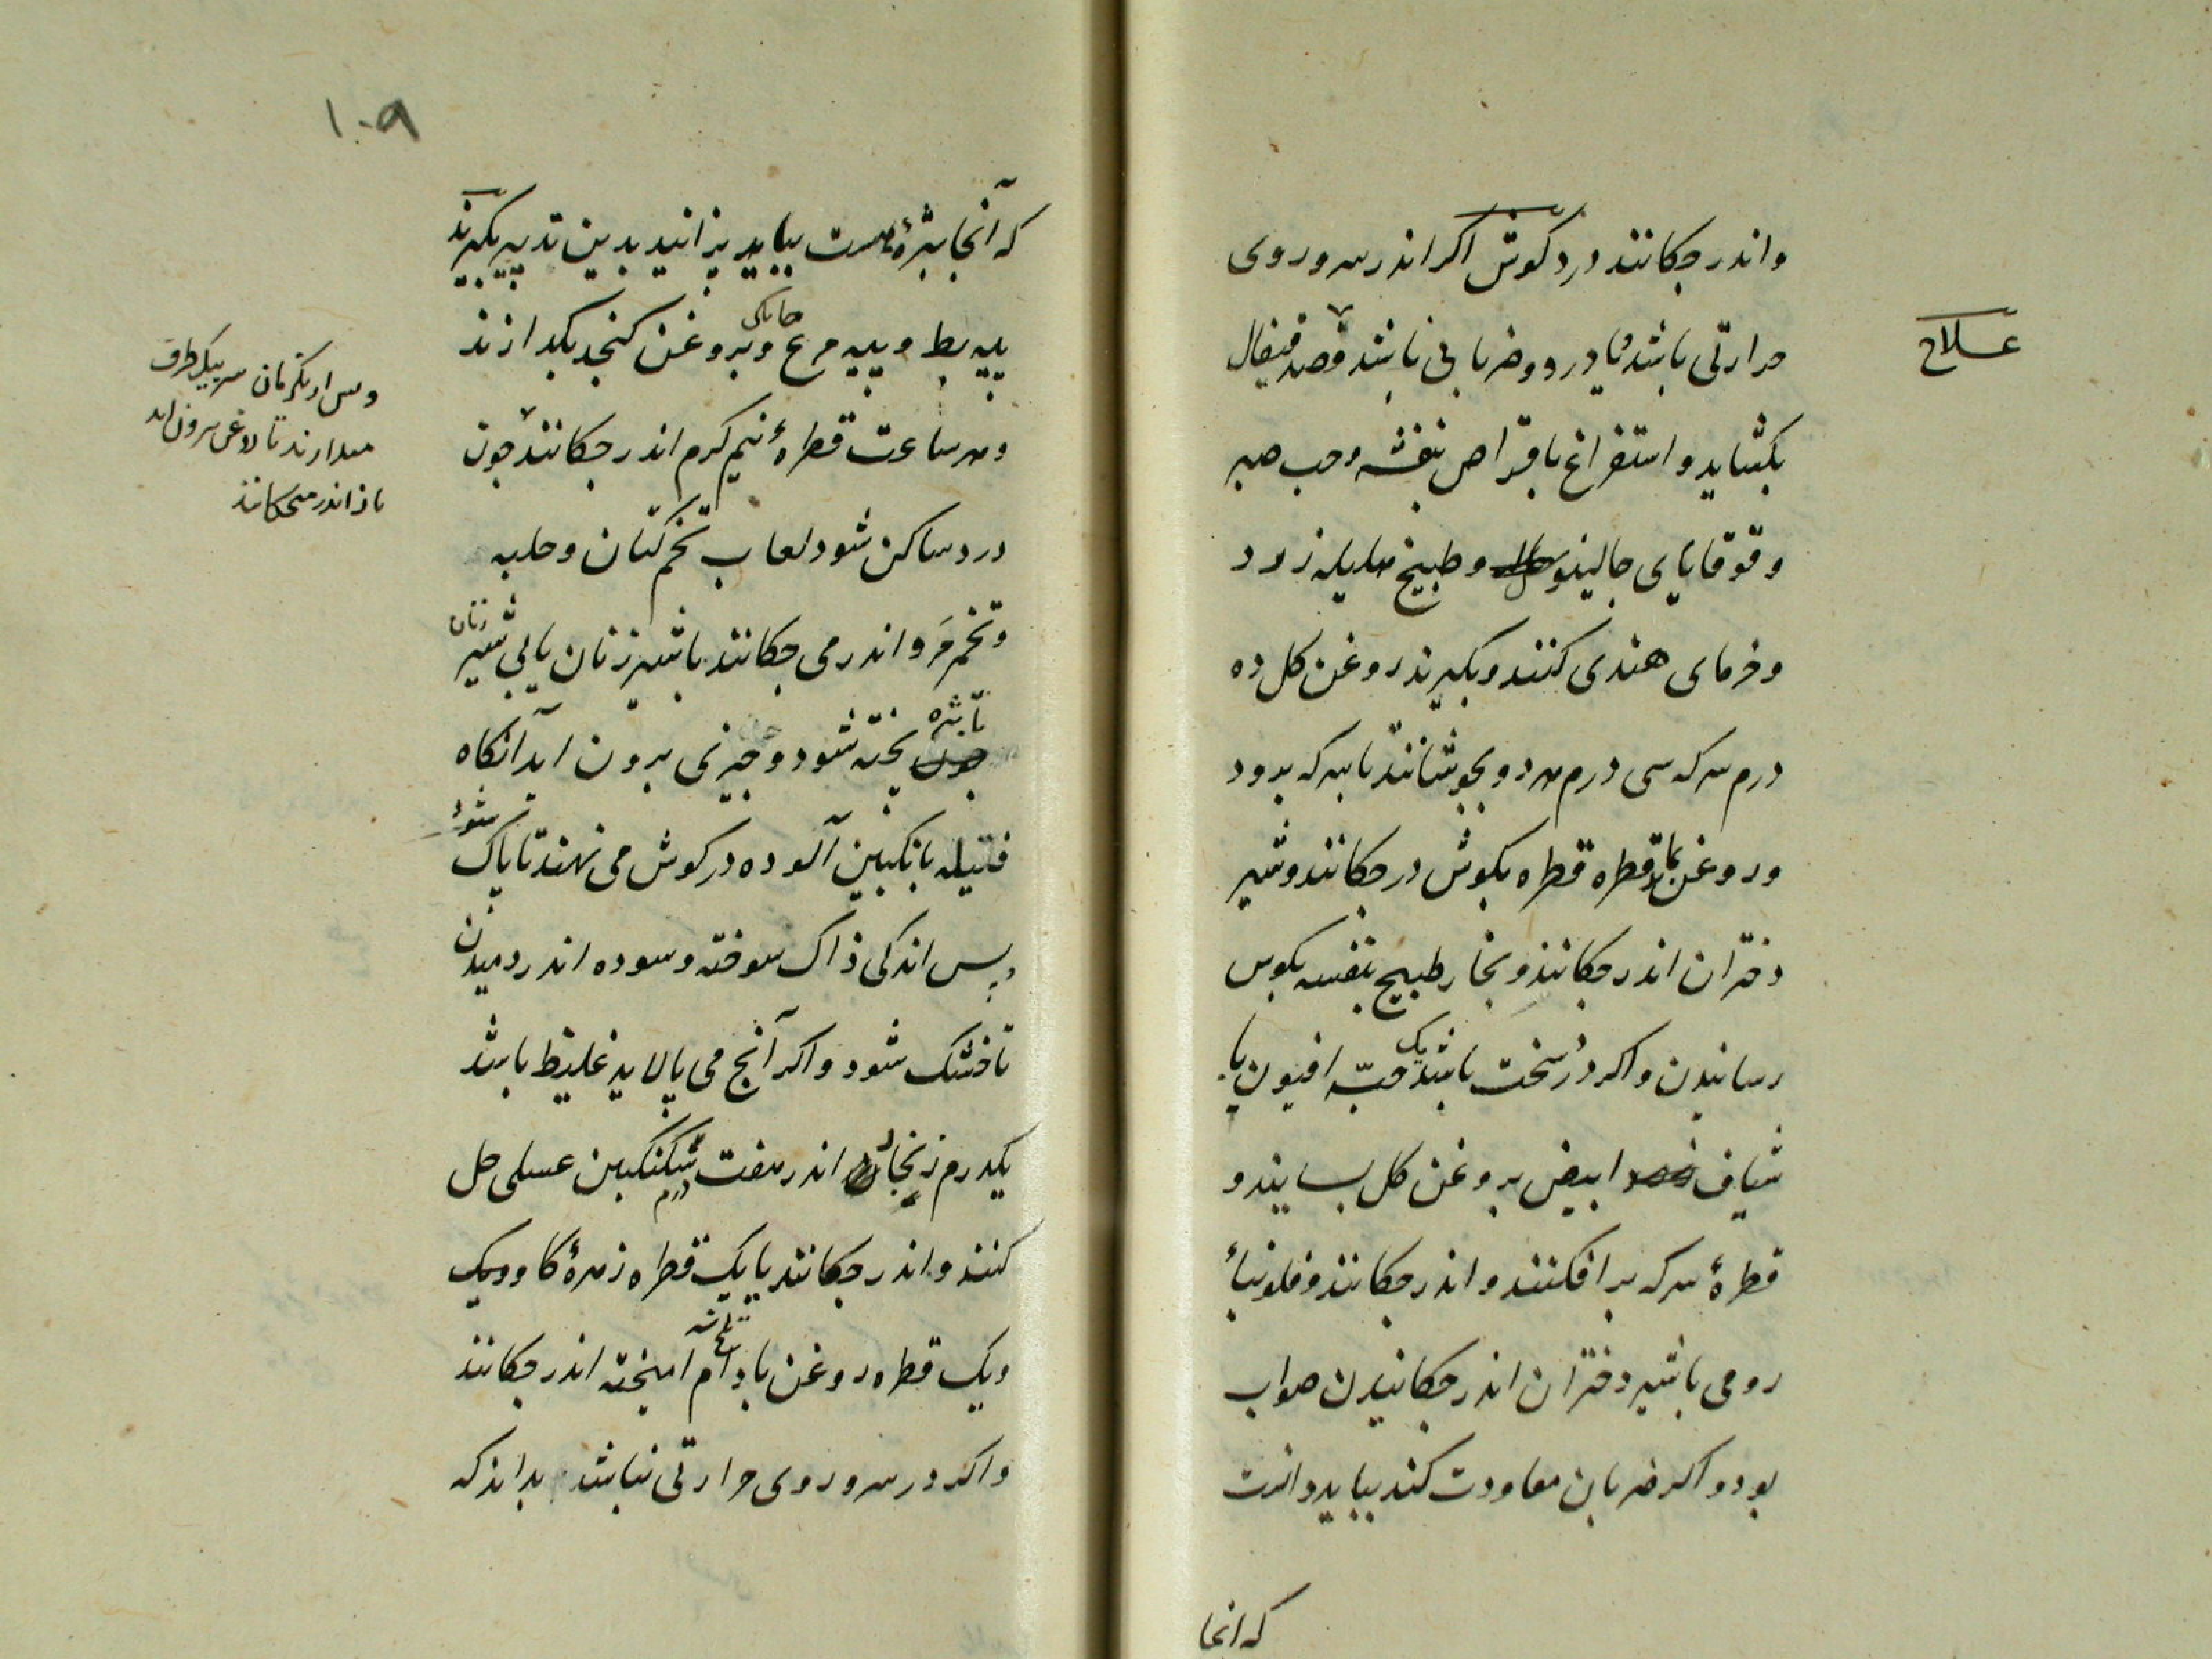 علاج
واندر چکانند درد کوش اکر اندر سر و روی
حرارتی باشد یا درد و ضربانی باشد فصد قیفال
بکشاید و استفراغ باقراص بنفشه و حب صبر
و قوقایای جالینوس و طبیخ هلیله زرد
و خرمای هندی کنند و بکیرند روغن کل ده
درم سرکه سی درم هر دو بجوشانند تا سرکه برود
و روغن بماند قطره قطره بکوش در چکانند و شیر
دختران اندر چکانند و بخار طبیخ بنفسه بکوس
رسانیدن و اکر درد سخت باشد یک حبّه افیون با
شیاف ابیض بروغن کل بسایند و
قطرهٔ سرکه برافکنند و اندر چکانند و فلونیا
رومی باشیر دختران اندر چکانیدن صواب
بود و اکر ضربان معاودت کند بباید دانست
که انجا
۱۰۹
که آنجا بثرهٔ است بباید پزانید بدین تدبیر بکیرند
پیه بط و پیه مرغ خانکی و بروغن کنجد بکدازند
و هر ساعت قطرهٔ نیم کرم اندر چکانند چون
درد ساکن شود لعاب تخم کتان و حلبه
و تخم مَرو اندر می چکانند باشیر زنان یا بی شیر زنان
تا بثره پخته شود و چیزی برون اید آنکاه
فتیله بانکبین آلوده در کوش می نهند تا پاک شود
و پس اندکی زاک سوخته و سوده اندر دمیدن
تا خشک شود و اکر آنچ می پالاید غلیظ باشد
یکدرم زنجار اندر هفت درم سکنکبین عسلی حل
کنند و اندر چکانند یا یک قطره زهرهٔ کاو ویک
ویک قطره روغن بادام تلخ امیخته اندر چکانند
و اکر در سر و روی حرارتی نباشد بداند که
و پس از یکزمان سر بیک طرف
میدارند تا روغن بیرون اید
باز اندر میچکانند